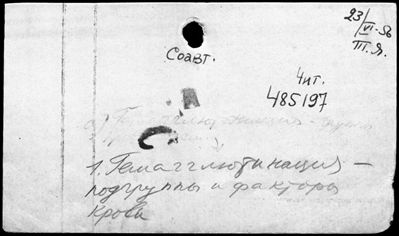 23/VI-56
III. Я.
Соавт.
Чит.
485197
1. Гемагглютинация –
подгруппы и факторы
крови